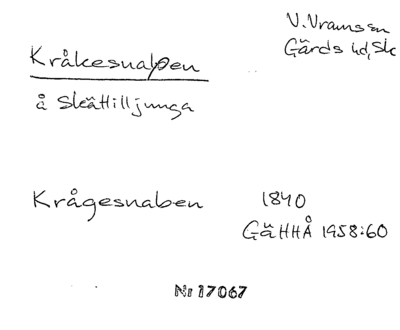 V. Vramssn
Gärds hd, Sk
Kråkesnappen
å Skättilljunga
Krågesnaben 1840
GäHHÅ 1958:60
Nr 17067